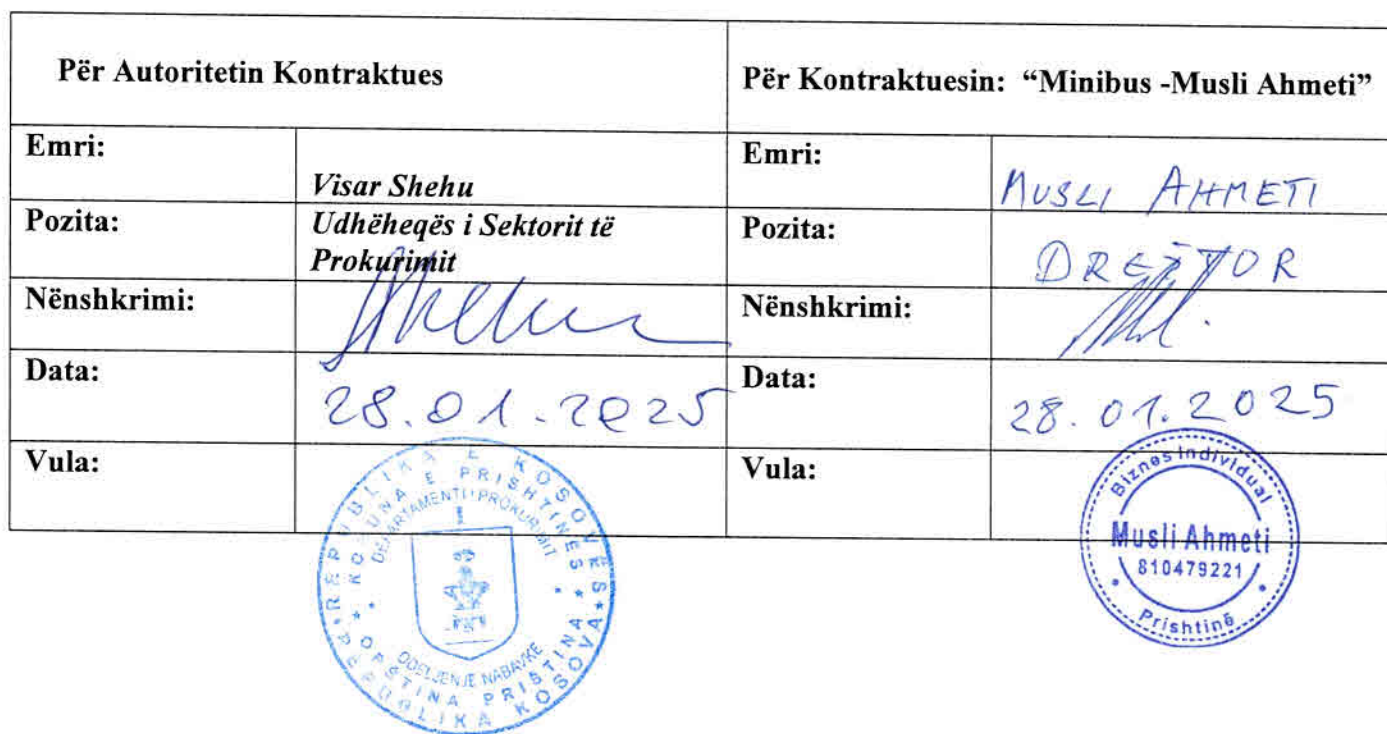 Për Autoritetin Kontraktues
Për Kontraktuesin: “Minibus -Musli Ahmeti”
Emri:
Visar Shehu
Emri:
MUSLI AHMETI
Pozita:
Udhëheqës i Sektorit të
Prokurimit
Pozita:
DREJTOR
Nënshkrimi:
Nënshkrimi:
Data:
28.01.2025
Data:
28.01.2025
Vula:
REPUBLIKA E KOSOVËS
KOMUNA E PRISHTINËS
DEPARTAMENTI I PROKURIMIT
ODELJENJE NABAVKE
OPŠTINA PRIŠTINA
REPUBLIKA KOSOVA
Vula:
Biznes Individual
Musli Ahmeti
810479221
Prishtinë